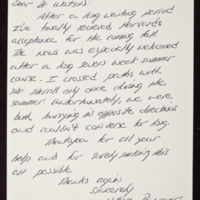 Dear Dr. Watson:
After a long waiting period
I've finally received Harvard's
acceptance for the coming fall.
The news was especially welcomed
after a long seven week summer
course. I crossed paths with
Mr Merrill only once during the
summer. Unfortunately, we were
both hurrying in opposite directions
and couldn't converse for long.
Thankyou for all your
help and for surely making this
all possible.
Thanks again
Sincerely